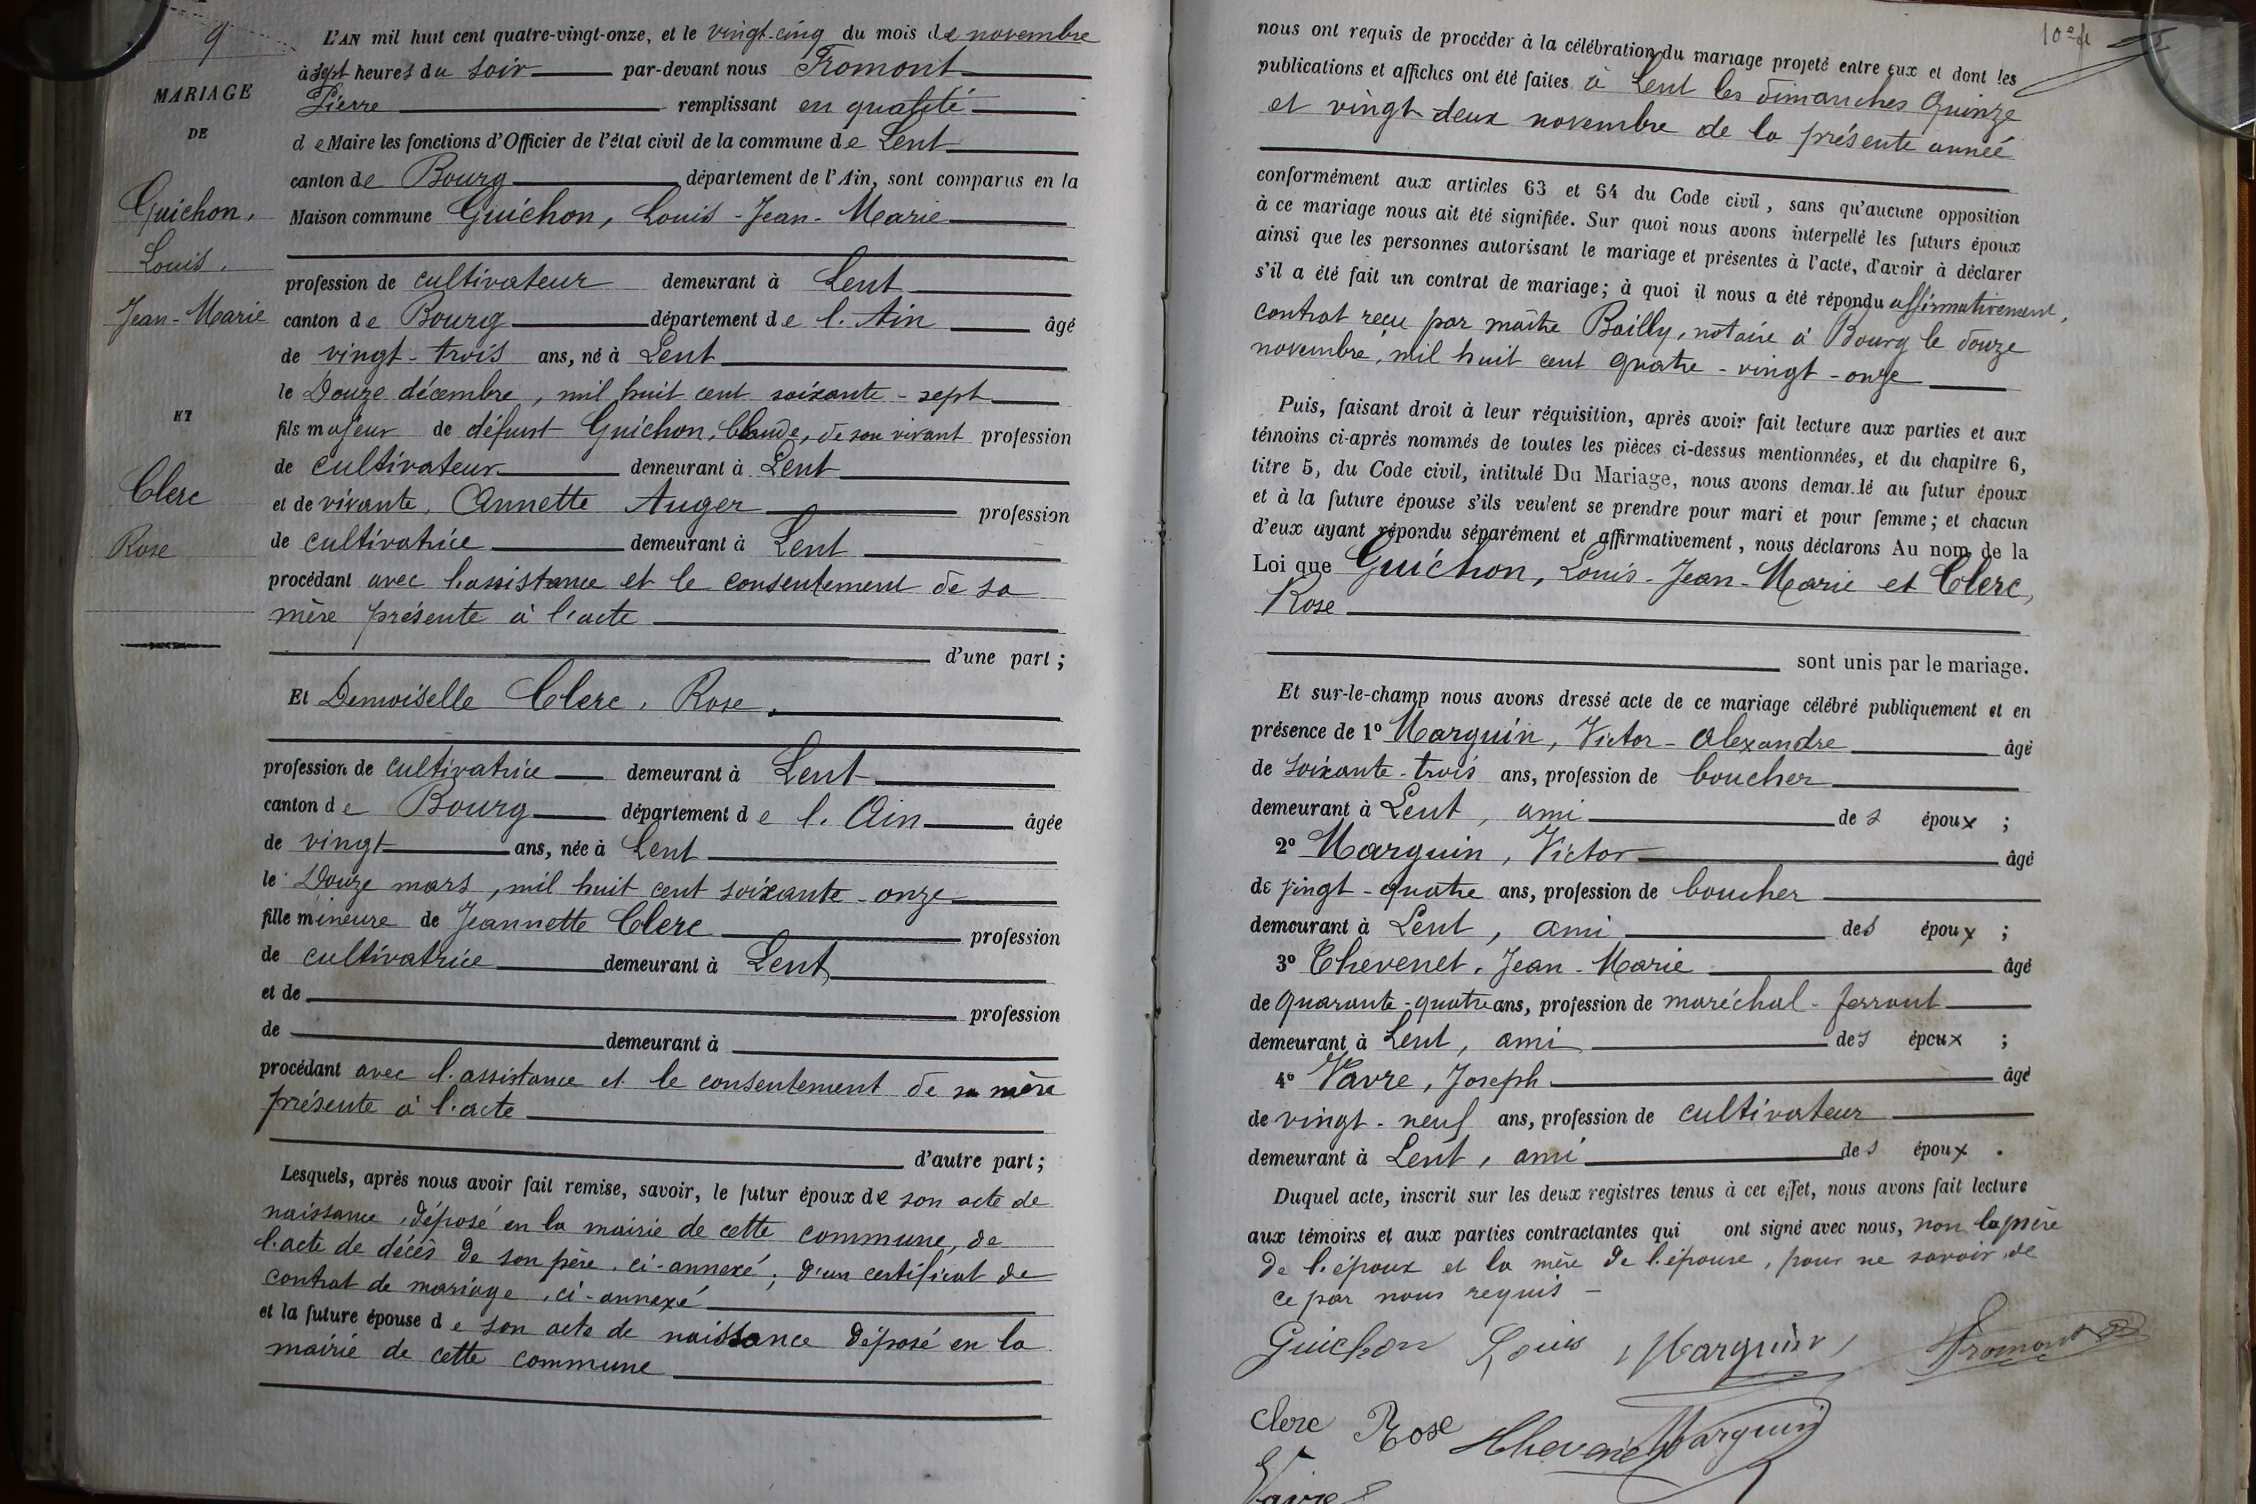 9
MARIAGE
DE
Guichon,
Louis,
Jean-Marie
ET
Clerc
Rose
L'AN mil huit cent quatre-vingt-onze, et le vingt-cinq du mois de novembre
à sept heures du soir par-devant nous Fromont
Pierre remplissant en qualité
de Maire les fonctions d'Officier de l'état civil de la commune de Lent
canton de Bourg département de l'Ain, sont comparus en la
Maison commune Guichon, Louis-Jean-Marie
profession de cultivateur demeurant à Lent
canton de Bourg département de l'Ain âgé
de vingt-trois ans, né à Lent
le Douze décembre, mil huit cent soixante-sept
fils majeur de défunt Guichon, Claude, de son vivant profession
de cultivateur demeurant à Lent
et de vivante, Annette Auger profession
de cultivatrice demeurant à Lent
procédant avec l'assistance et le consentement de sa
mère présente à l'acte
d'une part;
Et Demoiselle Clerc, Rose,
profession de cultivatrice demeurant à Lent
canton de Bourg département de l'Ain âgée
de vingt ans, née à Lent
le Douze mars, mil huit cent soixante-onze
fille mineure de Jeannette Clerc profession
de cultivatrice demeurant à Lent
et de profession
de demeurant à
procédant avec l'assistance et le consentement de sa mère
présente à l'acte
d'autre part;
Lesquels, après nous avoir fait remise, savoir, le futur époux de son acte de
naissance, déposé en la mairie de cette commune, de
l'acte de décès de son père, ci-annexé; d'un certificat de
contrat de mariage, ci-annexé
et la future épouse de son acte de naissance déposé en la
mairie de cette commune
nous ont requis de procéder à la célébration du mariage projeté entre eux et dont les
publications et affiches ont été faites à Lent les dimanches Quinze
et vingt-deux novembre de la présente année
conformément aux articles 63 et 64 du Code civil, sans qu'aucune opposition
à ce mariage nous ait été signifiée. Sur quoi nous avons interpellé les futurs époux
ainsi que les personnes autorisant le mariage et présentes à l'acte, d'avoir à déclarer
s'il a été fait un contrat de mariage; à quoi il nous a été répondu affirmativement,
contrat reçu par maître Bailly, notaire à Bourg le douze
novembre, mil huit cent quatre-vingt-onze
Puis, faisant droit à leur réquisition, après avoir fait lecture aux parties et aux
témoins ci-après nommés de toutes les pièces ci-dessus mentionnées, et du chapitre 6,
titre 5, du Code civil, intitulé Du Mariage, nous avons demandé au futur époux
et à la future épouse s'ils veulent se prendre pour mari et pour femme; et chacun
d'eux ayant répondu séparément et affirmativement, nous déclarons Au nom de la
Loi que Guichon, Louis-Jean-Marie et Clerc,
Rose
sont unis par le mariage.
Et sur-le-champ nous avons dressé acte de ce mariage célébré publiquement et en
présence de 1º Marguin, Victor-Alexandre âgé
de soixante-trois ans, profession de boucher
demeurant à Lent, ami des époux;
2º Marguin, Victor âgé
de vingt-quatre ans, profession de boucher
demeurant à Lent, ami des époux;
3º Thevenet, Jean-Marie âgé
de quarante-quatre ans, profession de maréchal-ferrant
demeurant à Lent, ami des époux;
4º Vavre, Joseph âgé
de vingt-neuf ans, profession de cultivateur
demeurant à Lent, ami des époux.
Duquel acte, inscrit sur les deux registres tenus à cet effet, nous avons fait lecture
aux témoins et aux parties contractantes qui ont signé avec nous, non la mère
de l'époux et la mère de l'épouse, pour ne savoir, de
ce par nous requis
Guichon Louis Marguin Fromont
Clerc Rose Thevenet Marguin
Vavre J